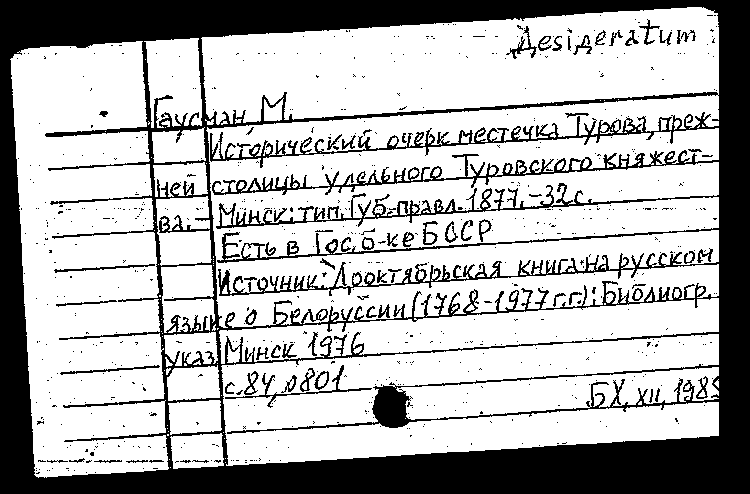 Дesiдeratum
Гаусман, М.
Исторический очерк местечка Турова, преж-
ней столицы удельного Туровского княжест-
ва. - Минск: тип. Губ. правл. 1877. - 32 с.
Есть в Гос. б-ке БССР
Источник: Дооктябрьская книга на русском
языке о Белоруссии (1768-1977 г.г.): Библиогр.
указ Минск, 1976
с. 84, 801
БХ, XII, 1985